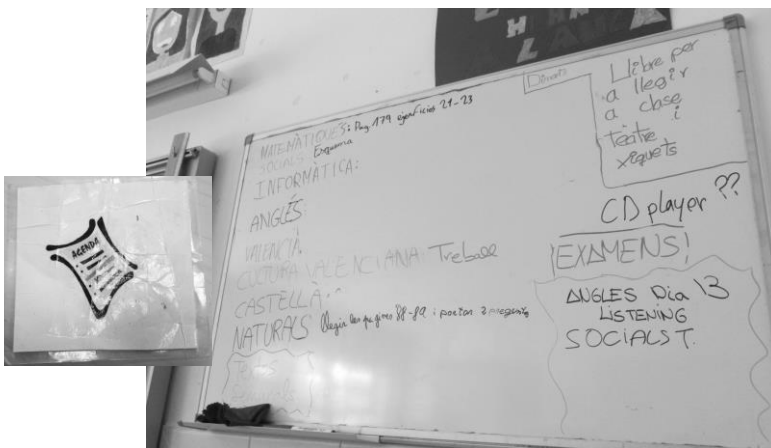 AGENDA
MATEMÀTIQUES: Pag 179 ejercicios 21-23
SOCIALS Esquema
INFORMÀTICA:
ANGLÉS
VALENCIÀ
CULTURA VALENCIANA: Treball
CASTELLÀ:
NATURALS llegir les pagines 88-89 i portar 2 preguntes
Dimarts
Llibre per
a llegir
a clase
i
teàtre
xiquets
CD player ??
¡EXAMENS!
ANGLES Dia 13
LISTENING
SOCIALS T.